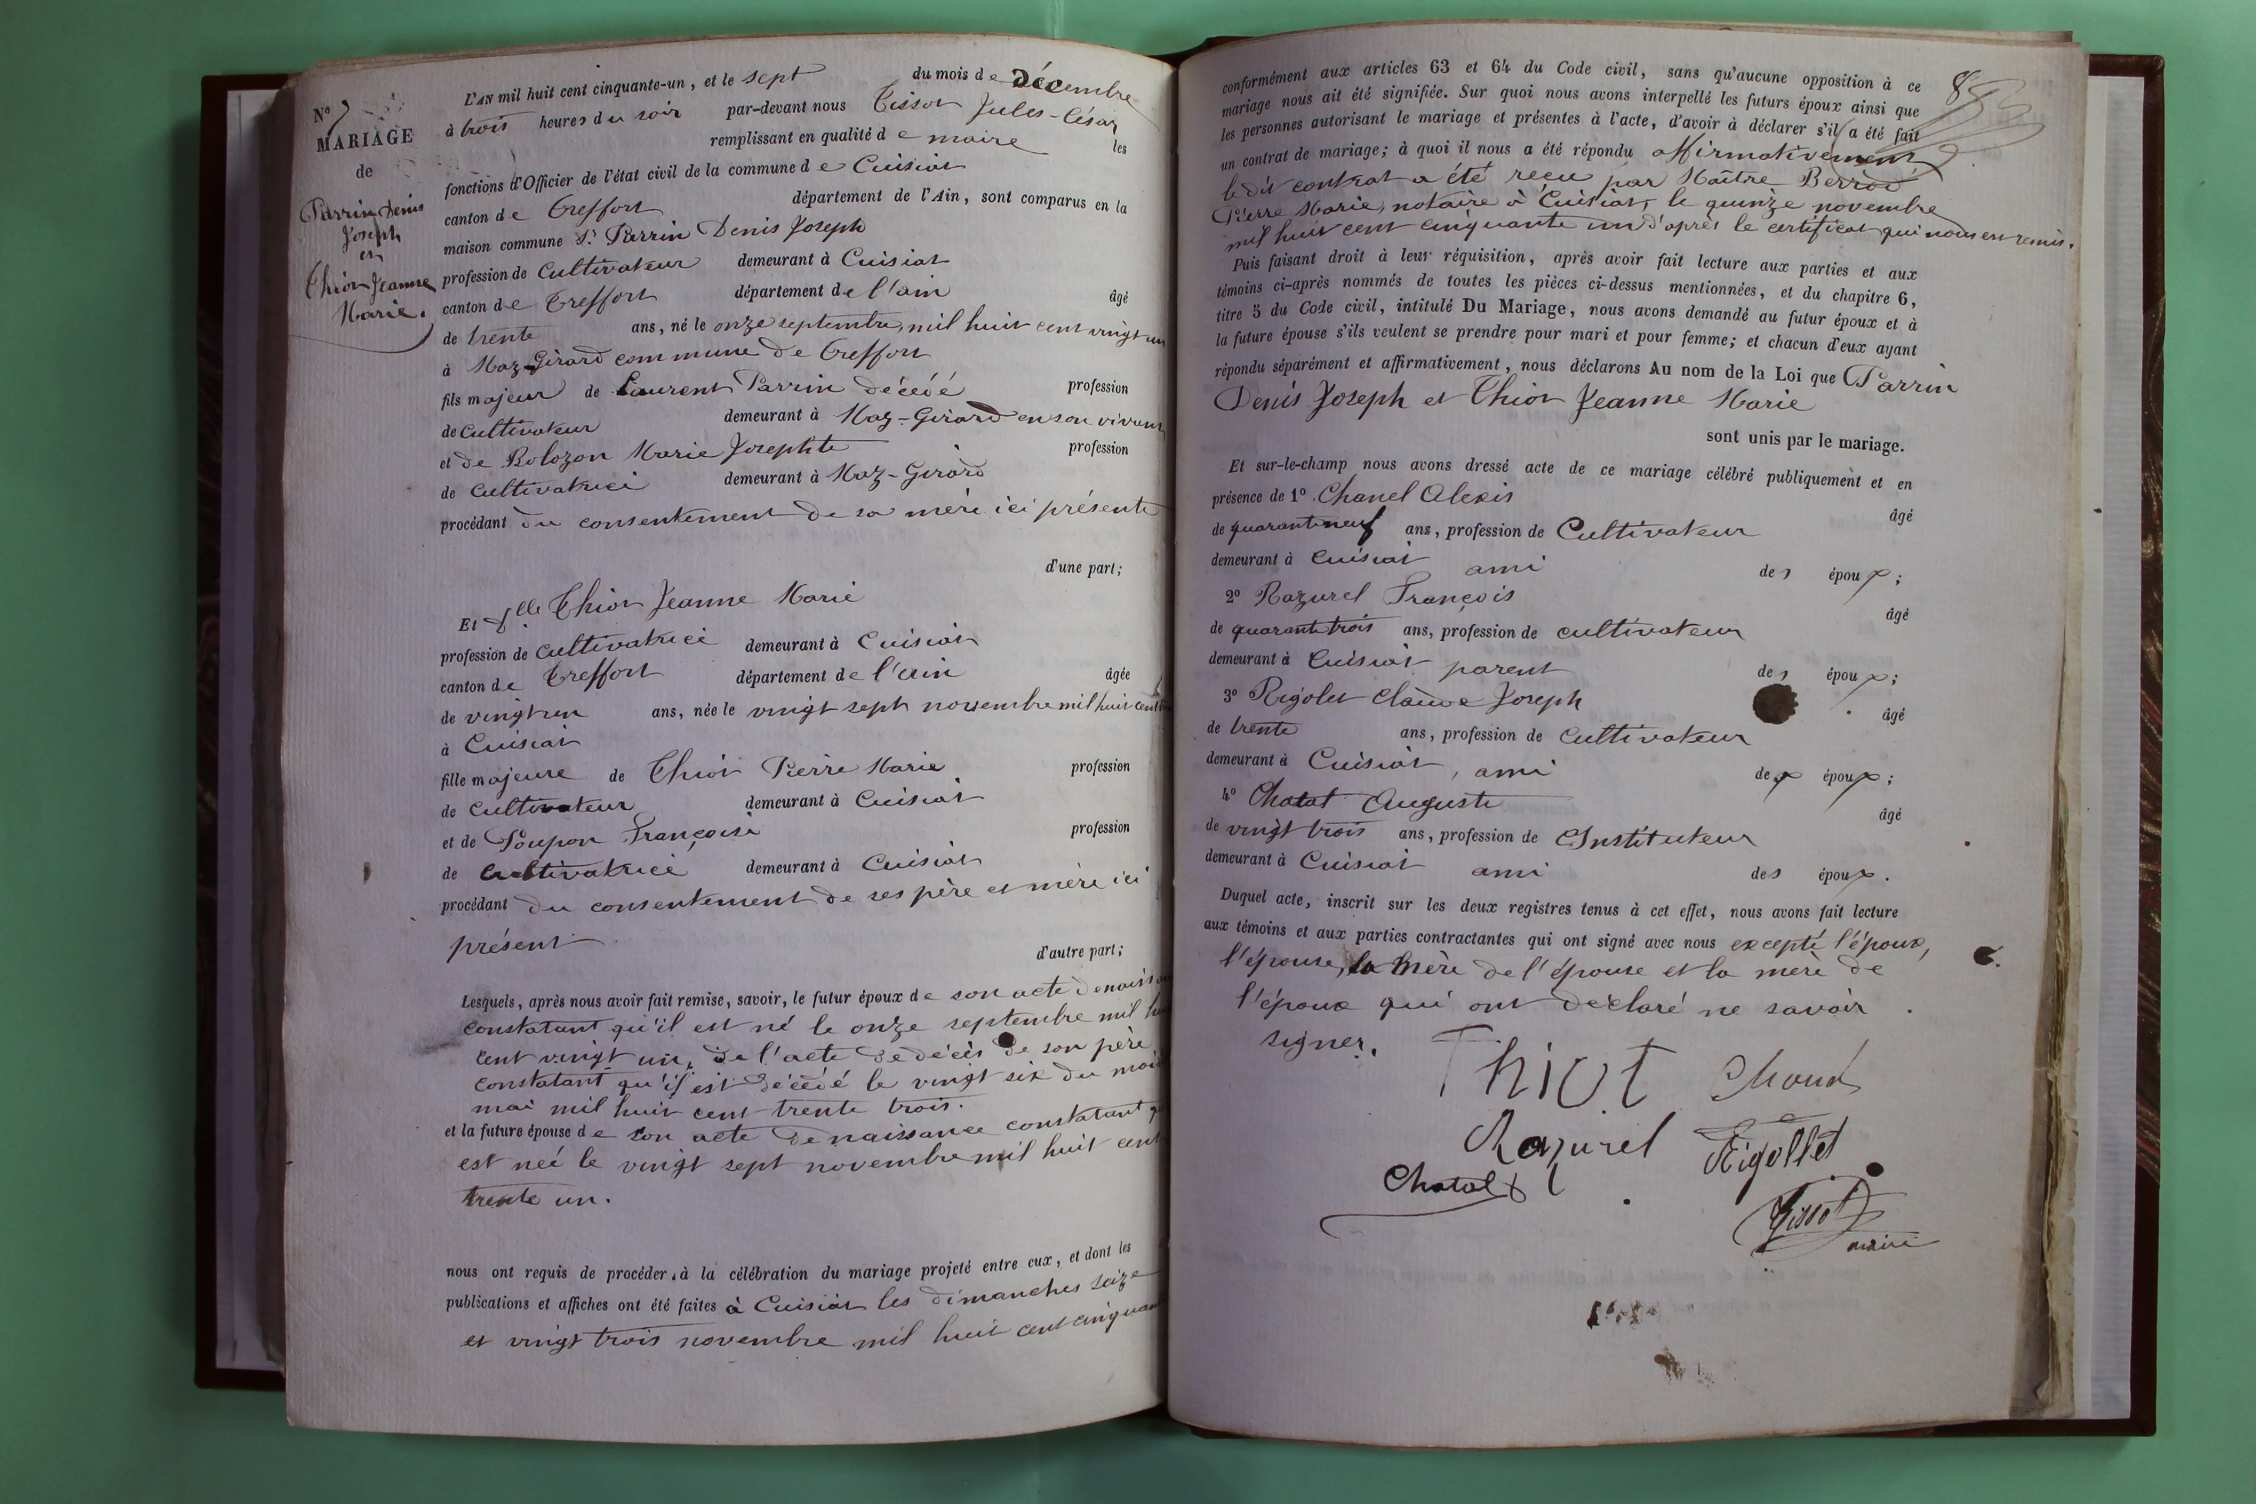 Nº 7
MARIAGE
de
Parrin Denis
Joseph
et
Thiot Jeanne
Marie.
L'AN mil huit cent cinquante-un, et le sept du mois de Décembre
à trois heures du soir par-devant nous Tissot Jules-César
remplissant en qualité de maire les
fonctions d'Officier de l'état civil de la commune de Cuisiat
canton de Treffort département de l'Ain, sont comparus en la
maison commune Sr Parrin Denis Joseph
profession de Cultivateur demeurant à Cuisiat
canton de Treffort département de l'ain âgé
de trente ans, né le onze septembre mil huit cent vingt un
à Maz-Girard commune de Treffort
fils majeur de Laurent Parrin décédé profession
de cultivateur demeurant à Maz-Girard en son vivant
et de Bolozon Marie Josephte profession
de cultivatrice demeurant à Maz-Girard
procédant du consentement de sa mère ici présente
d'une part;
Et dlle Thiot Jeanne Marie
profession de cultivatrice demeurant à Cuisiat
canton de Treffort département de l'ain âgée
de vingt un ans, née le vingt sept novembre mil huit cent
à Cuisiat
fille majeure de Thiot Pierre Marie profession
de cultivateur demeurant à Cuisiat
et de Poupon Françoise profession
de cultivatrice demeurant à Cuisiat
procédant du consentement de ses père et mère ici
présent
d'autre part;
Lesquels, après nous avoir fait remise, savoir, le futur époux de son acte de naissance
constatant qu'il est né le onze septembre mil huit
cent vingt un, de l'acte de décès de son père
constatant qu'il est décédé le vingt six du mois
mai mil huit cent trente trois.
et la future épouse de son acte de naissance constatant qu
est née le vingt sept novembre mil huit cent
trente un.
nous ont requis de procéder à la célébration du mariage projeté entre eux, et dont les
publications et affiches ont été faites à Cuisiat les dimanches seize
et vingt trois novembre mil huit cent cinquante
8
conformément aux articles 63 et 64 du Code civil, sans qu'aucune opposition à ce
mariage nous ait été signifiée. Sur quoi nous avons interpellé les futurs époux ainsi que
les personnes autorisant le mariage et présentes à l'acte, d'avoir à déclarer s'il a été fait
un contrat de mariage; à quoi il nous a été répondu affirmativement
le dit contrat a été reçu par Maître Berrod
Pierre Marie, notaire à Cuisiat, le quinze novembre
mil huit cent cinquante un d'après le certificat qui nous est remis.
Puis faisant droit à leur réquisition, après avoir fait lecture aux parties et aux
témoins ci-après nommés de toutes les pièces ci-dessus mentionnées, et du chapitre 6,
titre 5 du Code civil, intitulé Du Mariage, nous avons demandé au futur époux et à
la future épouse s'ils veulent se prendre pour mari et pour femme; et chacun d'eux ayant
répondu séparément et affirmativement, nous déclarons Au nom de la Loi que Parrin
Denis Joseph et Thiot Jeanne Marie
sont unis par le mariage.
Et sur-le-champ nous avons dressé acte de ce mariage célébré publiquement et en
présence de 1º Chanel Alexis âgé
de quarante neuf ans, profession de Cultivateur
demeurant à Cuisiat ami des époux;
2º Razurel François âgé
de quarante trois ans, profession de cultivateur
demeurant à Cuisiat parent des époux;
3º Rigolet Claude Joseph âgé
de trente ans, profession de cultivateur
demeurant à Cuisiat, ami des époux;
4º Chatat Auguste âgé
de vingt trois ans, profession de Instituteur
demeurant à Cuisiat ami des époux.
Duquel acte, inscrit sur les deux registres tenus à cet effet, nous avons fait lecture
aux témoins et aux parties contractantes qui ont signé avec nous excepté l'époux,
l'épouse, la mère de l'épouse et la mère de
l'époux qui ont déclaré ne savoir
signer.
Thiot Chanel
Razurel Rigollet
Chatal
Tissot
maire